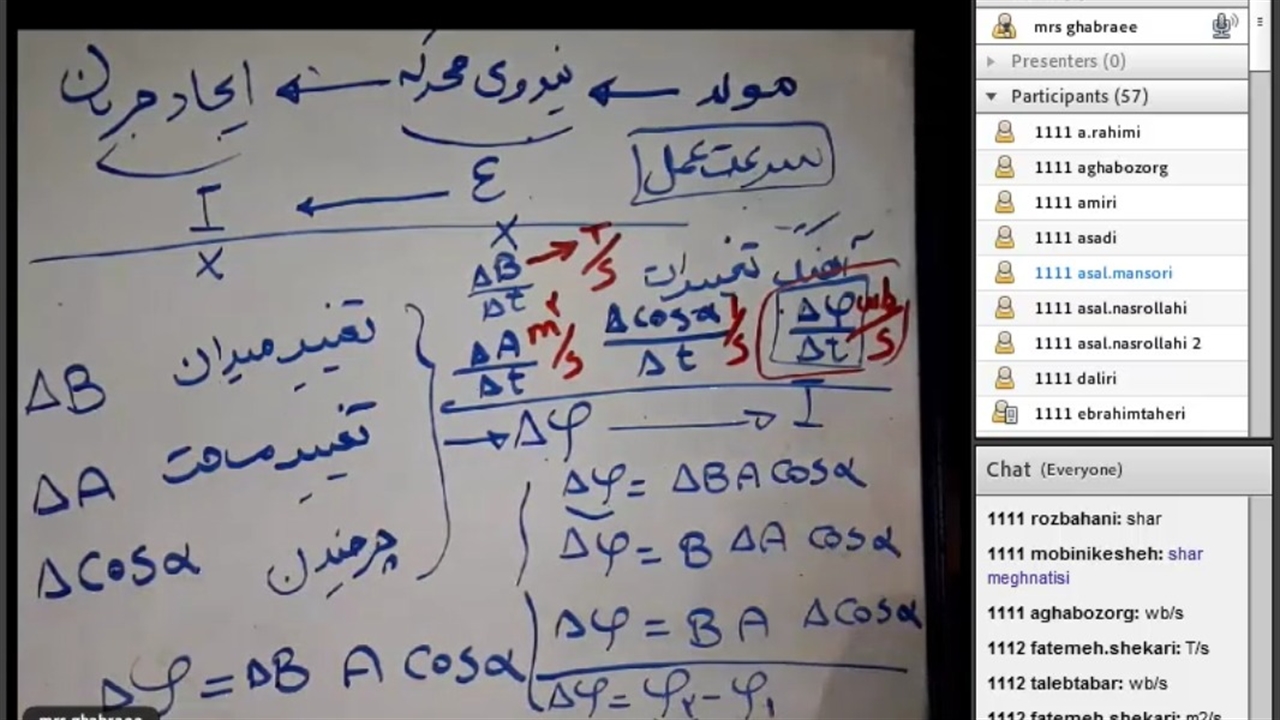 مولد ← نیروی محرکه ← ایجاد جریان
سرعت عمل
ε → I
x x
آهنگ تغییرات
ΔB/Δt → T/s
ΔA/Δt m²/s Δcosα/Δt 1/s Δφ/Δt wb/s
ΔB تغییر میدان
ΔA تغییر مساحت
Δcosα چرخیدن
→ Δφ → I
Δφ = ΔB A cosα
Δφ = B ΔA cosα
Δφ = B A Δcosα
Δφ = ΔB A cosα
Δφ = φ₂ - φ₁
mrs ghabraee
mrs ghabraee
Presenters (0)
Participants (57)
1111 a.rahimi
1111 aghabozorg
1111 amiri
1111 asadi
1111 asal.mansori
1111 asal.nasrollahi
1111 asal.nasrollahi 2
1111 daliri
1111 ebrahimtaheri
Chat (Everyone)
1111 rozbahani: shar
1111 mobinikesheh: shar
meghnatisi
1111 aghabozorg: wb/s
1112 fatemeh.shekari: T/s
1112 talebtabar: wb/s
1112 fatemeh.shekari: m2/s